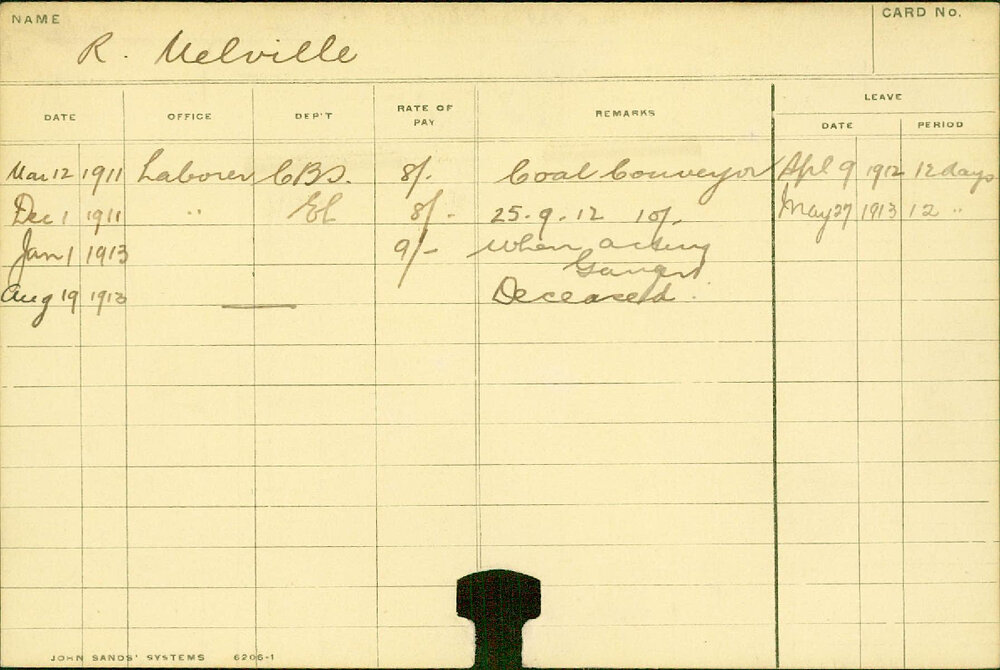 NAME
CARD No.
R. Melville
DATE OFFICE DEP'T RATE OF PAY REMARKS LEAVE
DATE PERIOD
Mar 12 1911 Laborer CBS. 8/. Coal Conveyor Apl 9 1912 12 days
Dec 1 1911 " El 8/- 25.9.12 10/. May 27 1913 12 "
Jan 1 1913 9/- when acting
Ganger
Aug 19 1913 — Deceased.
JOHN SANDS' SYSTEMS 6206-1